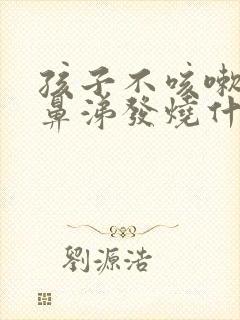 孩子不咳嗽
鼻涕發燒什
劉源浩